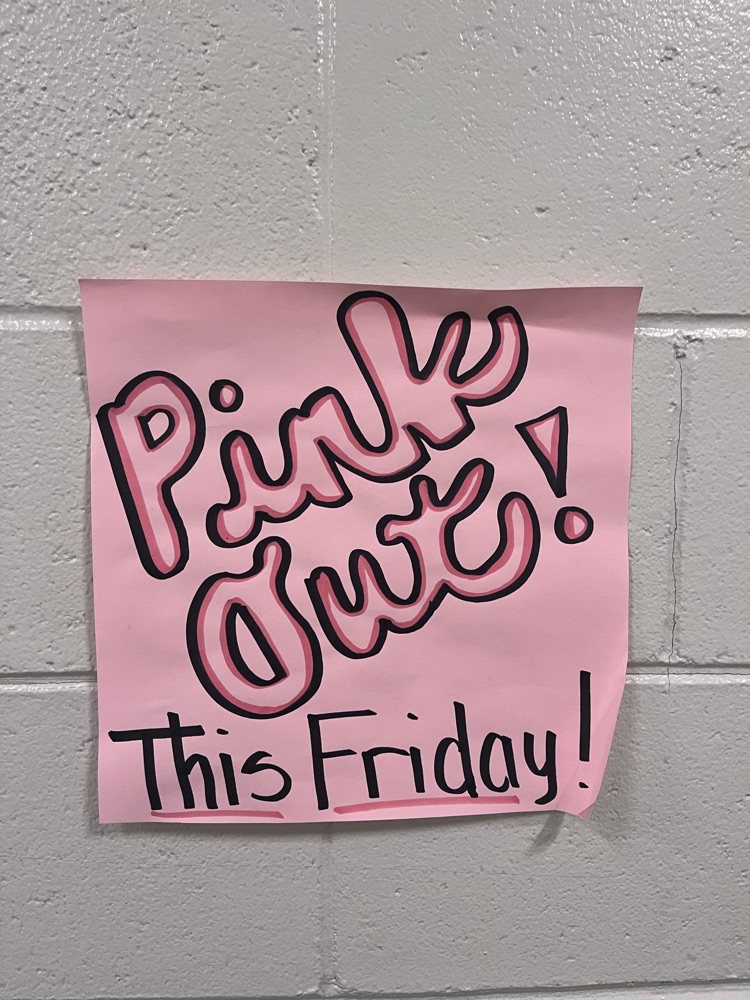 Pink
Out!
This Friday!